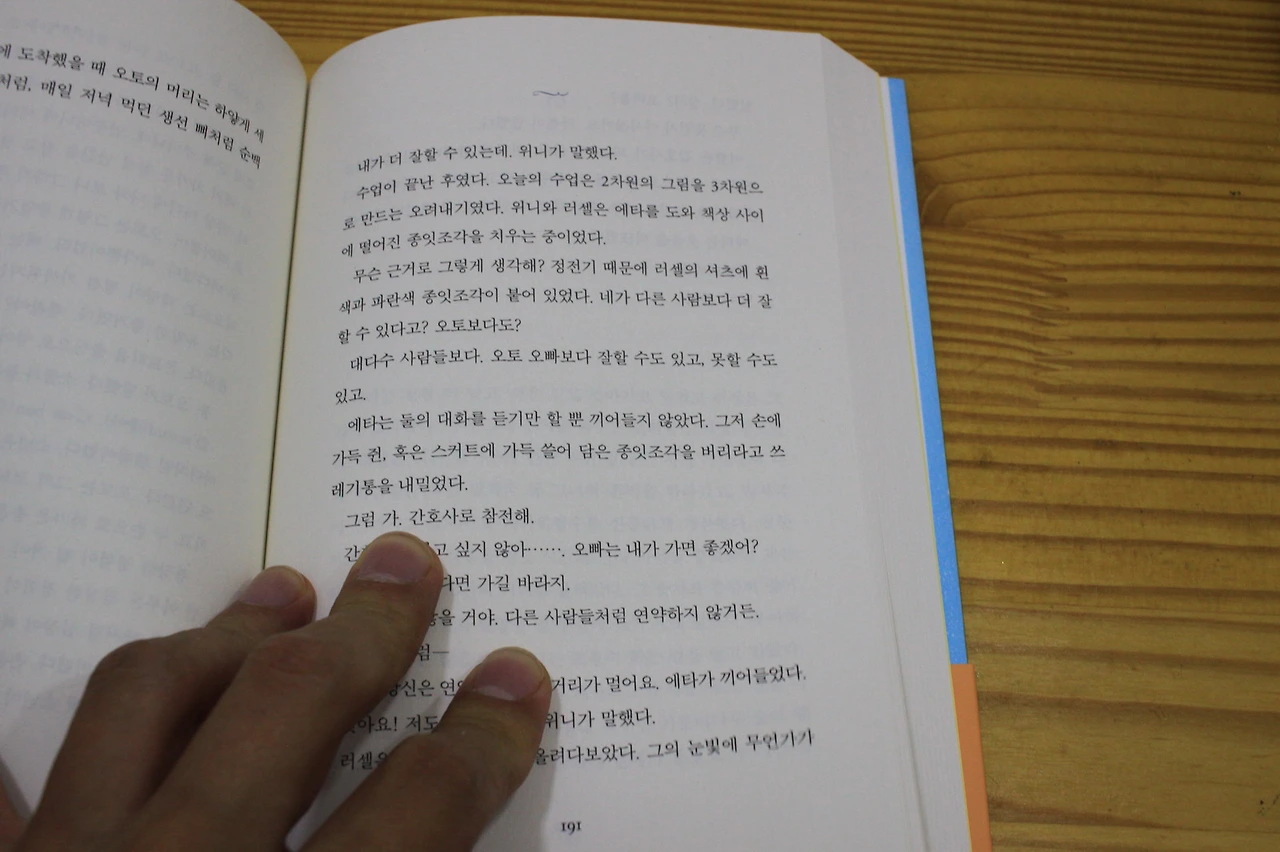 에 도착했을 때 오토의 머리는 하얗게 세
처럼, 매일 저녁 먹던 생선 뼈처럼 순백
내가 더 잘할 수 있는데. 위니가 말했다.
수업이 끝난 후였다. 오늘의 수업은 2차원의 그림을 3차원으
로 만드는 오려내기였다. 위니와 러셀은 에타를 도와 책상 사이
에 떨어진 종잇조각을 치우는 중이었다.
무슨 근거로 그렇게 생각해? 정전기 때문에 러셀의 셔츠에 흰
색과 파란색 종잇조각이 붙어 있었다. 네가 다른 사람보다 더 잘
할 수 있다고? 오토보다도?
대다수 사람들보다. 오토 오빠보다 잘할 수도 있고, 못할 수도
있고.
에타는 둘의 대화를 듣기만 할 뿐 끼어들지 않았다. 그저 손에
가득 쥔, 혹은 스커트에 가득 쓸어 담은 종잇조각을 버리라고 쓰
레기통을 내밀었다.
그럼 가. 간호사로 참전해.
고 싶지 않아……. 오빠는 내가 가면 좋겠어?
다면 가길 바라지.
거야. 다른 사람들처럼 연약하지 않거든.
럼—
당신은 거리가 멀어요. 에타가 끼어들었다.
저도 위니가 말했다.
러셀은 올려다보았다. 그의 눈빛에 무언가가
191